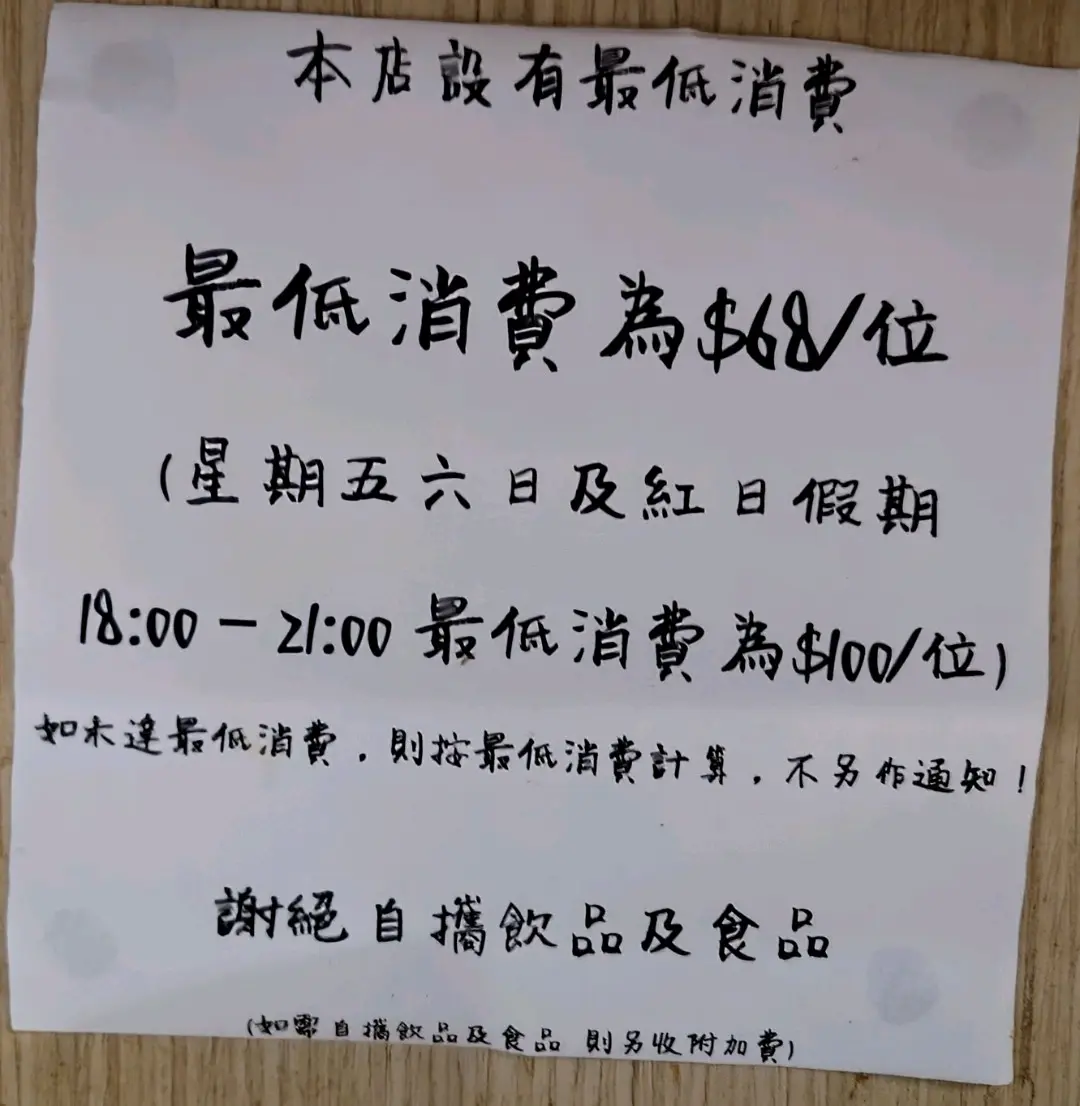 本店設有最低消費
最低消費為$68/位
(星期五六日及紅日假期
18:00-21:00最低消費為$100/位)
如未達最低消費,則按最低消費計算,不另作通知!
謝絕自攜飲品及食品
(如需自攜飲品及食品 則另收附加費)